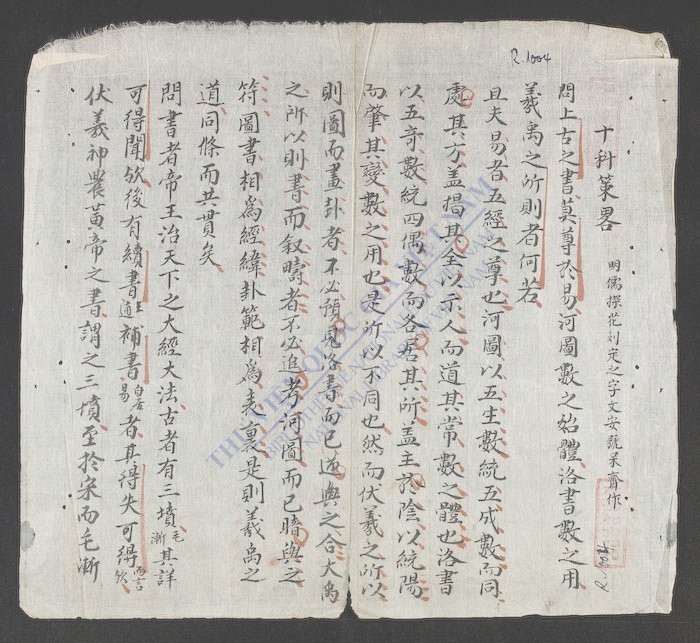 R.1004
十科策畧 明儒探花刘定之字文安號呆齋作
問上古之書莫尊於易河圖數之始體洛書數之用
羲禹之所則者何若
且夫易者五經之尊也河圖以五生數統五成數而同
處其方盖揭其全以示人而道其常數之體也洛書
以五奇數統四偶數而各居其所盖主於陰以統陽
而肇其變數之用也是所以不同也然而伏羲之所以
則圖而畫卦者不必預見洛書而已逆與之合大禹
之所以則書而叙疇者不必追考河圖而已暗與之
符圖書相為經緯卦範相為表裏是則羲禹之
道同條而共貫矣
問書者帝王治天下之大經大法古者有三墳毛漸其詳
可得聞欤後有續書王通補書白居易者其得失可得而言欤
伏羲神農黃帝之書謂之三墳至於宋而毛漸
THƯ VIỆN QUỐC GIA VIỆT NAM